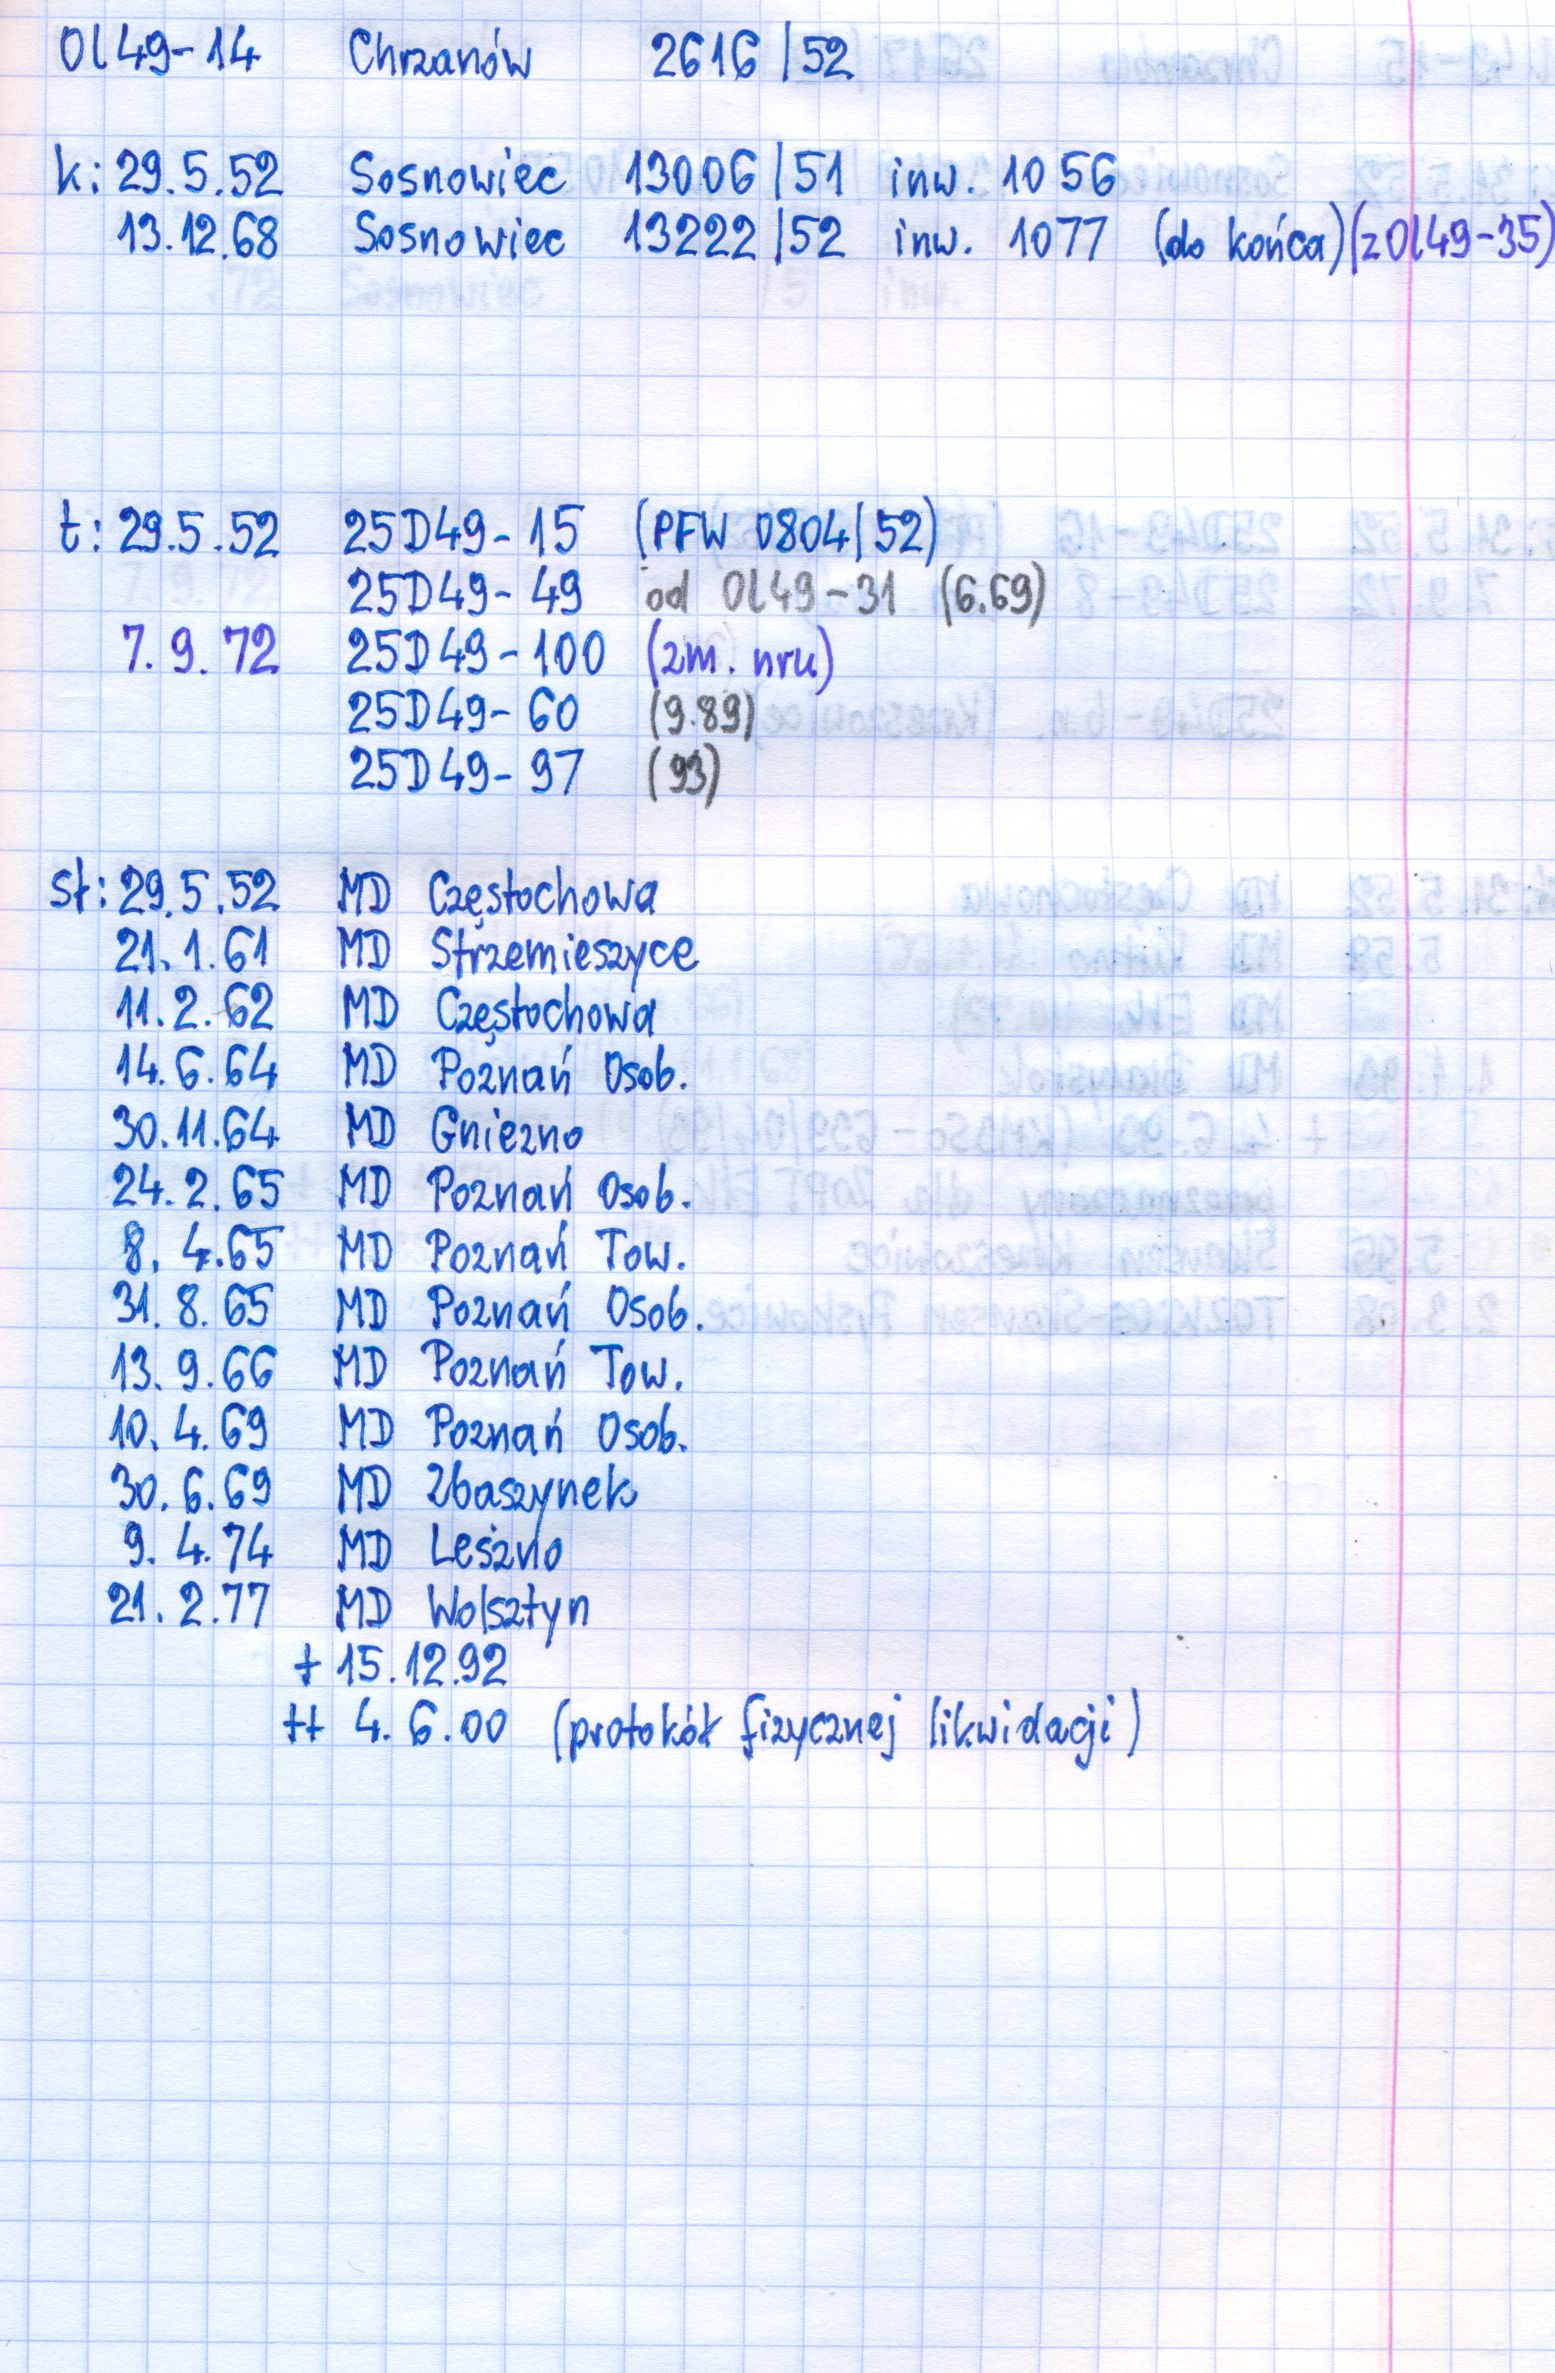 Ol49-14 Chrzanów 2616/52
k: 29.5.52 Sosnowiec 13006/51 inw. 1056
13.12.68 Sosnowiec 13222/52 inw. 1077 (do końca) (z Ol49-35)
t: 29.5.52 25D49-15 (PFW 0804/52)
25D49-49 od Ol49-31 (6.69)
7.9.72 25D49-100 (zm. nru)
25D49-60 (9.89)
25D49-97 (93)
st: 29.5.52 MD Częstochowa
21.1.61 MD Strzemieszyce
11.2.62 MD Częstochowa
14.6.64 MD Poznań Osob.
30.11.64 MD Gniezno
24.2.65 MD Poznań Osob.
8.4.65 MD Poznań Tow.
31.8.65 MD Poznań Osob.
13.9.66 MD Poznań Tow.
10.4.69 MD Poznań Osob.
30.6.69 MD Zbaszynek
9.4.74 MD Leszno
21.2.77 MD Wolsztyn
+ 15.12.92
++ 4.6.00 (protokół fizycznej likwidacji)